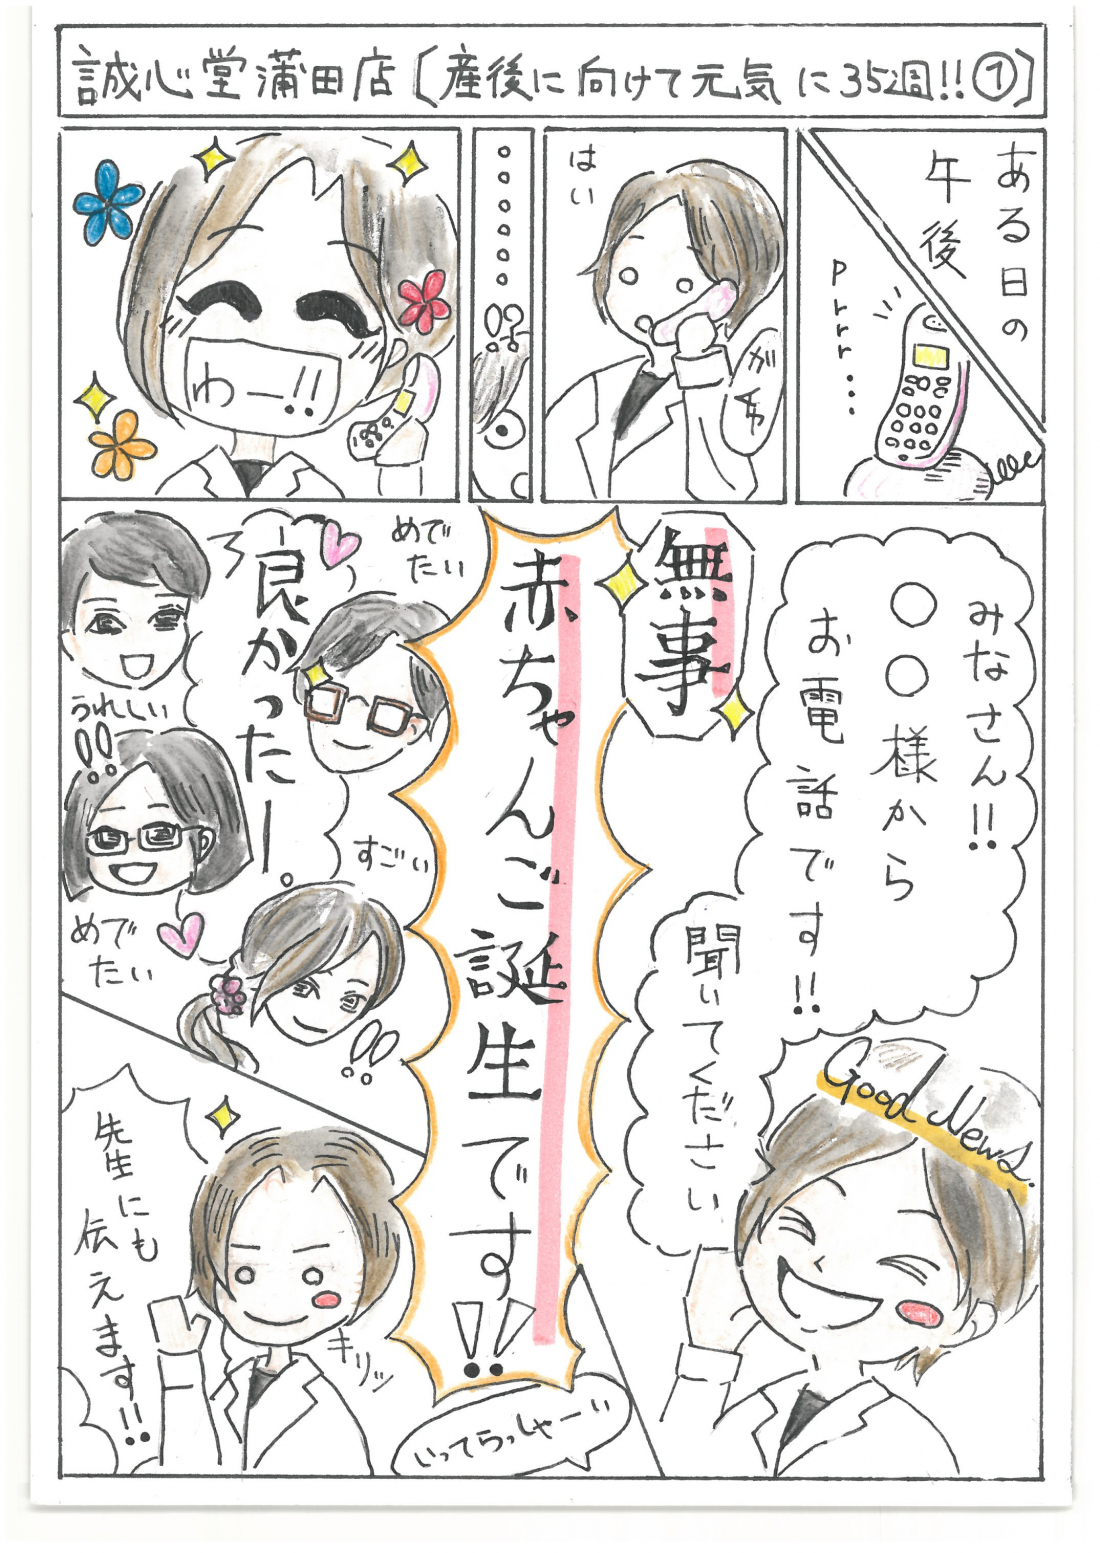 誠心堂蒲田店〔産後に向けて元気に35週!!①〕
ある日の
午後
Prrr...
はい
ガチャ
。。。。。。
!?
わー!!
みなさん!!
〇〇様から
お電話です!!
聞いてください
Good News.
無事
赤ちゃんご誕生です!!
めで
たい
良かったー。
うれしい
!!
すごい
めで
たい
!!
先生にも
伝えます!!
キリッ
いってらっしゃーい